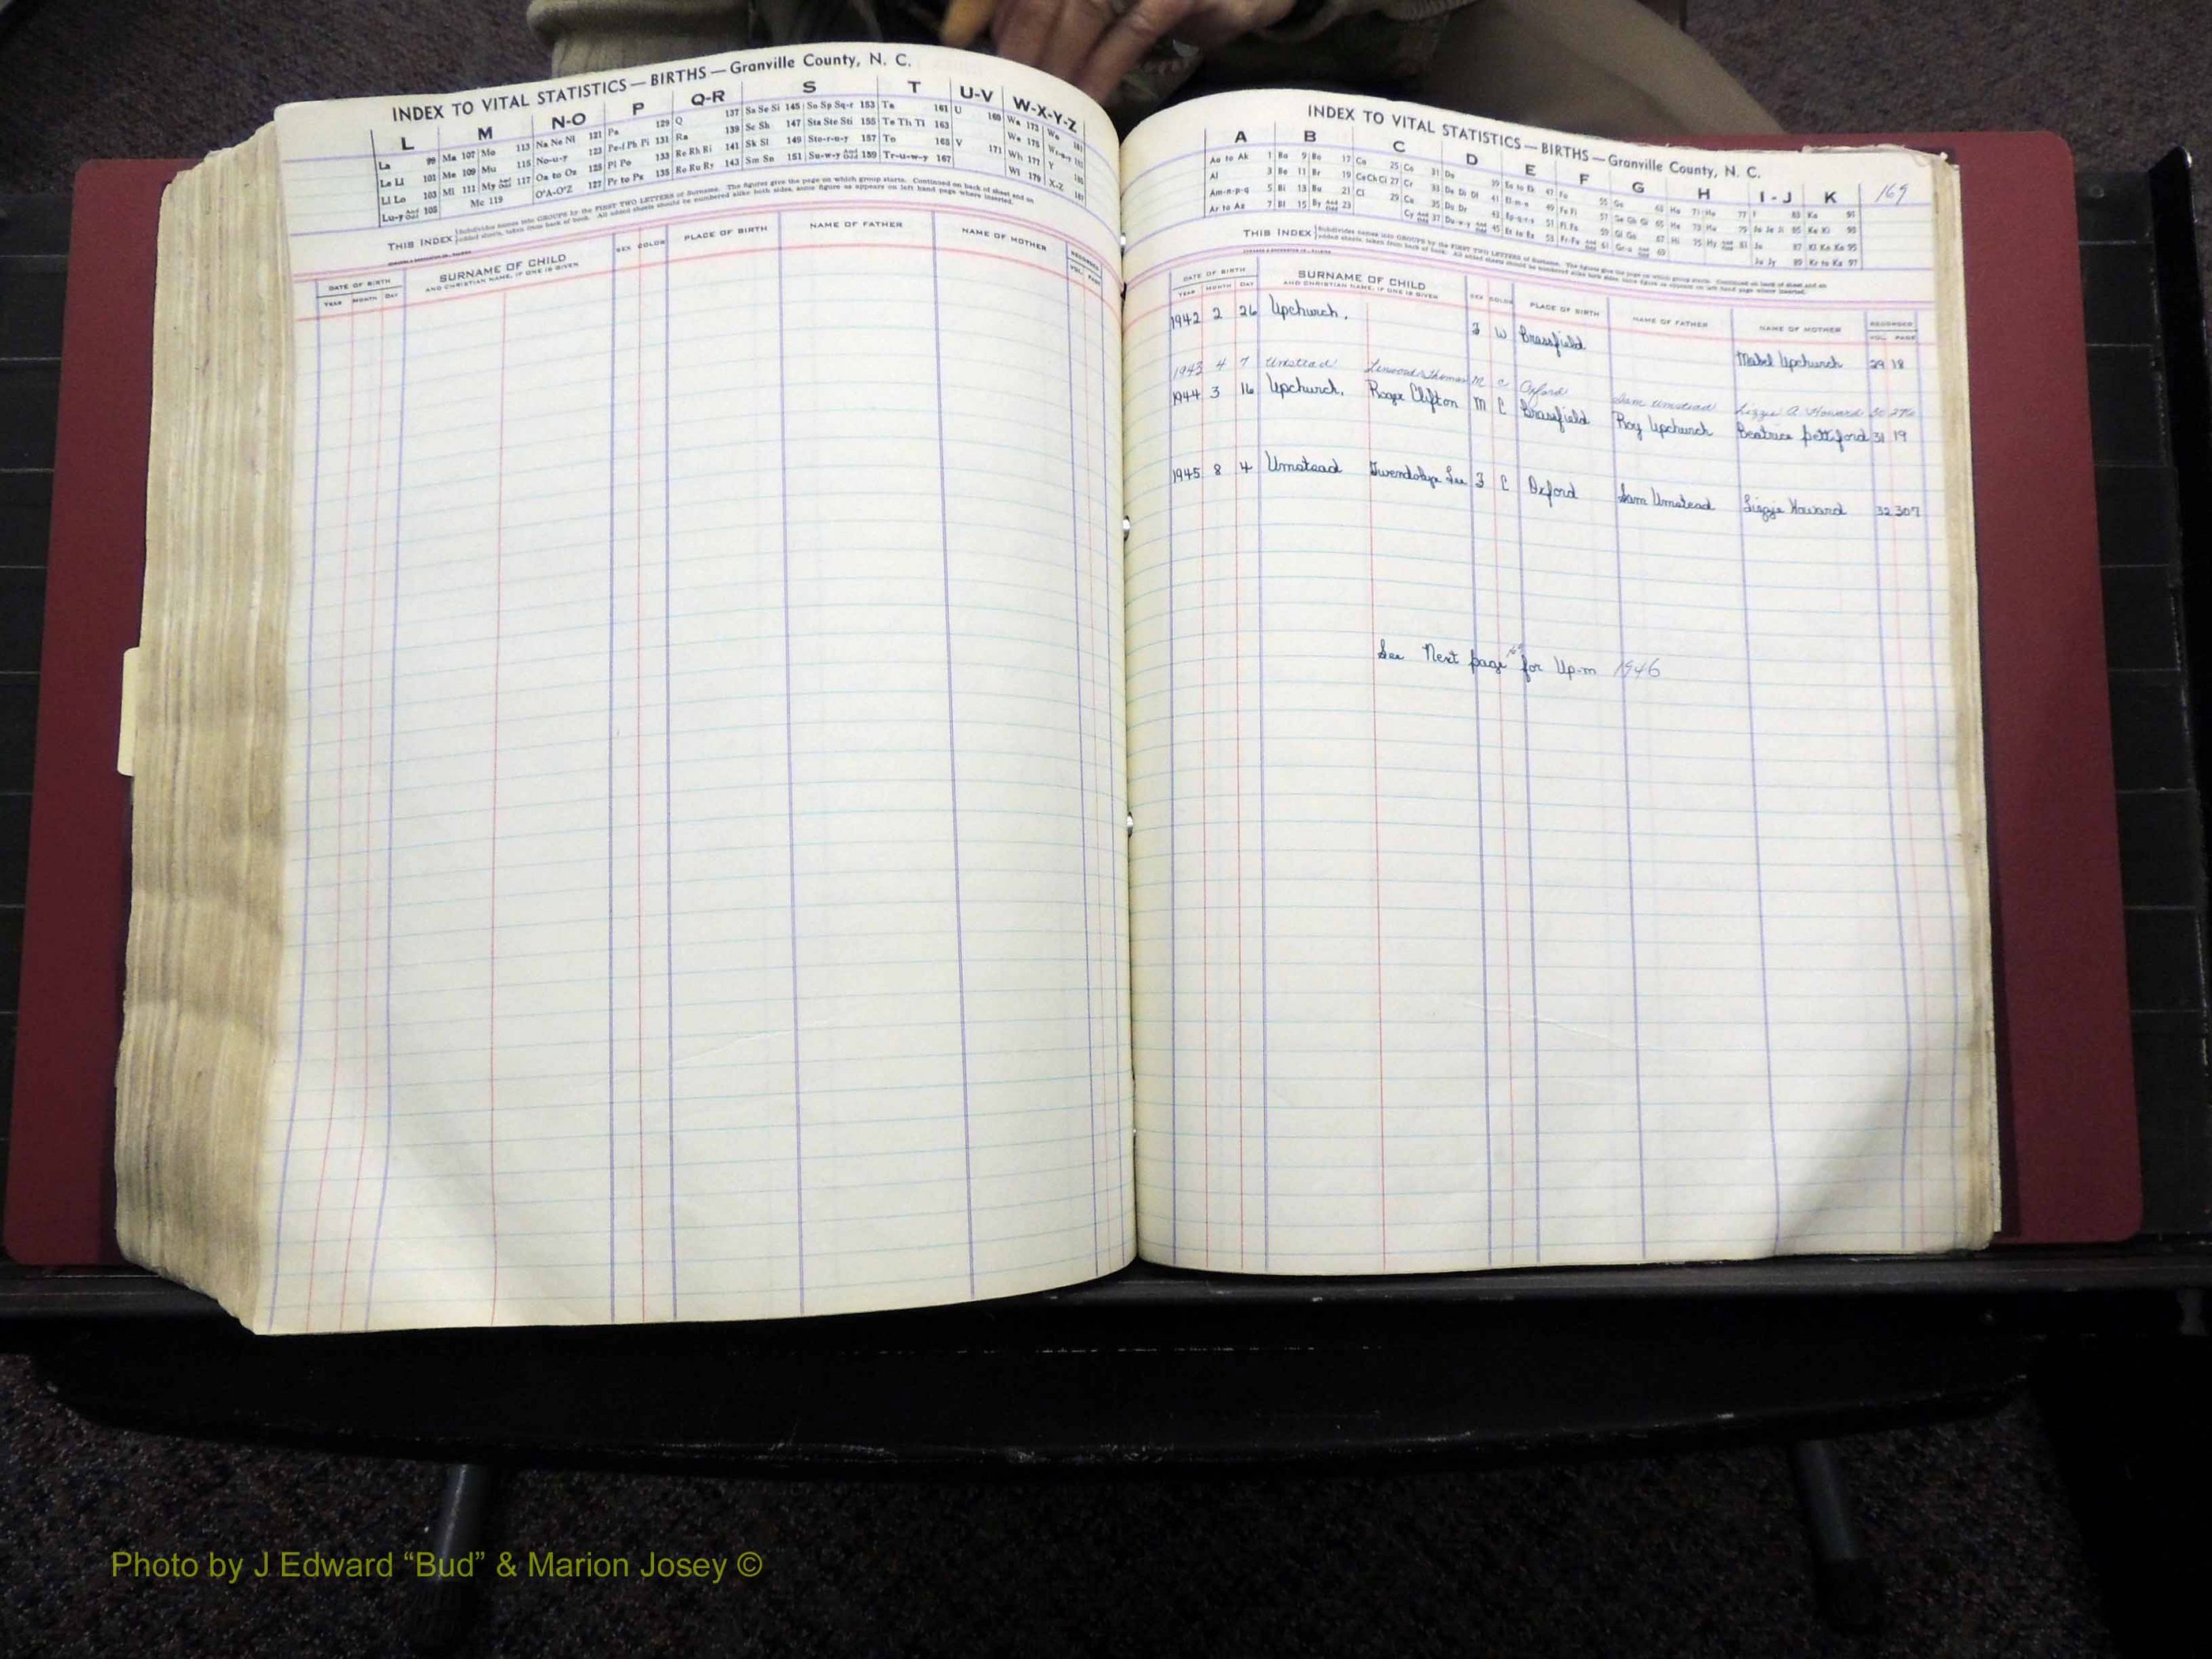 INDEX TO VITAL STATISTICS — BIRTHS — Granville County, N. C.
L M N-O P Q-R S T U-V W-X-Y-Z
La 99 Ma 107 Mo 113 Na Ne Ni 121 Pa 129 Q 137 Sa Se Si 145 So Sp Sq-r 153 Ta 161 U 169 Wa 173 Wo 181
Le Li 101 Me 109 Mu 115 No-u-y 123 Pe-f Ph Pi 131 Ra 139 Sc Sh 147 Sta Ste Sti 155 Te Th Ti 163 We 175
Ll Lo 103 Mi 111 My And Odd 117 Oa to Oz 125 Pl Po 133 Re Rh Ri 141 Sk Sl 149 Sto-r-u-y 157 To 165 V 171 Wh 177 Y
Lu-y And Odd 105 Mc 119 O'A-O'Z 127 Pr to Pz 135 Ro Ru Ry 143 Sm Sn 151 Su-w-y And Odd 159 Tr-u-w-y 167 Wi 179 X-Z
THIS INDEX Subdivides names into GROUPS by the FIRST TWO LETTERS of Surname. The figures give the page on which group starts. Continued on back of sheet and on
added sheets, taken from back of book. All added sheets should be numbered alike both sides, same figure as appears on left hand page where inserted.
DATE OF BIRTH SURNAME OF CHILD SEX COLOR PLACE OF BIRTH NAME OF FATHER NAME OF MOTHER RECORDED
YEAR MONTH DAY AND CHRISTIAN NAME, IF ONE IS GIVEN VOL. PAGE
INDEX TO VITAL STATISTICS — BIRTHS — Granville County, N. C.
169
A B C D E F G H I - J K
Aa to Ak 1 Ba 9 Bo 17 Ca 25 Co 31 Da 39 Ea to Ek 47 Fa 55 Ga 63 Ha 71 Ho 77 I 83 Ka 91
Al 3 Be 11 Br 19 Ce Ch Ci 27 Cr 33 De Di Dl 41 El-m-n 49 Fe Fi 57 Ge Gh Gi 65 He 73 Hu 79 Ja Je Ji 85 Ke Ki 93
Am-n-p-q 5 Bi 13 Bu 21 Cl 29 Cu 35 Do Dr 43 Ep-q-r-s 51 Fl Fo 59 Gl Go 67 Hi 75 Hy And Odd 81 Jo 87 Kl Kn Ko 95
Ar to Az 7 Bl 15 By And Odd 23 Cy And Odd 37 Du-w-y And Odd 45 Et to Ez 53 Fr-Fu And Odd 61 Gr-u And Odd 69 Ju Jy 89 Kr to Kz 97
THIS INDEX Subdivides names into GROUPS by the FIRST TWO LETTERS of Surname. The figures give the page on which group starts. Continued on back of sheet and on
added sheets, taken from back of book. All added sheets should be numbered alike both sides, same figure as appears on left hand page where inserted.
DATE OF BIRTH SURNAME OF CHILD SEX COLOR PLACE OF BIRTH NAME OF FATHER NAME OF MOTHER RECORDED
YEAR MONTH DAY AND CHRISTIAN NAME, IF ONE IS GIVEN VOL. PAGE
1942 2 26 Upchurch, F W Brassfield Mabel Upchurch 29 18
1943 4 7 Umstead Linwood Thomas M C Oxford Sam Umstead Lizzie A. Howard 30 276
1944 3 16 Upchurch, Roger Clifton M C Brassfield Roy Upchurch Beatrice Pettiford 31 19
1945 8 4 Umstead Gwendolyn Lee F C Oxford Sam Umstead Lizzie Howard 32 307
See Next page for Up-m 1946
Photo by J Edward “Bud” & Marion Josey ©